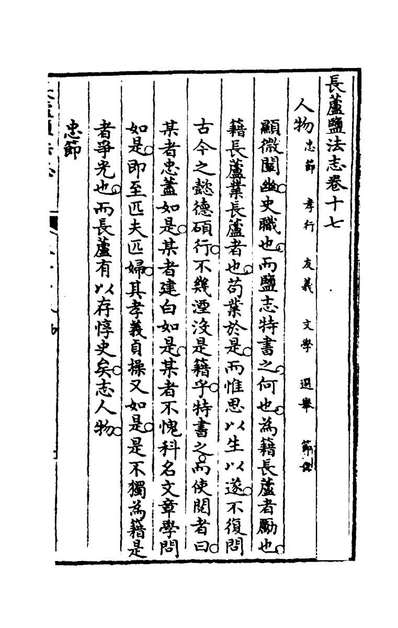 長蘆鹽法志卷十七
人物 忠節 孝行 友義 文學 選舉 節烈
顯微闡幽史職也而鹽志特書之何也為籍長蘆者勵也
籍長蘆業長蘆者也苟業於是而惟思以生以遂不復問
古今之懿德碩行不幾湮沒是籍乎特書之而使閱者曰
某者忠藎如是某者建白如是某者不愧科名文章學問
如是即至匹夫匹婦其孝義貞操又如是是不獨為籍是
者爭光也而長蘆有以存惇史矣志人物
忠節